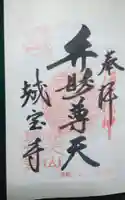 奉拝
弁財尊天
城宝寺